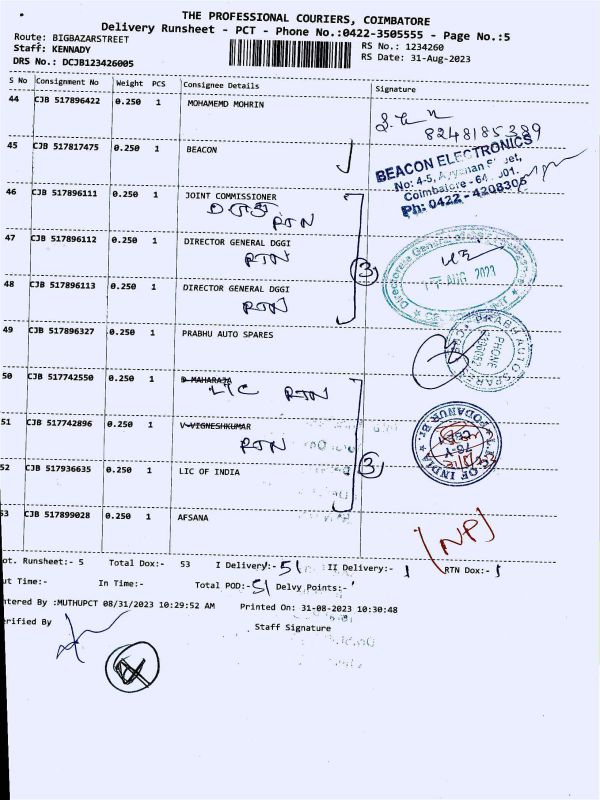 THE PROFESSIONAL COURIERS, COIMBATORE
Delivery Runsheet - PCT - Phone No.:0422-3505555 - Page No.:5
Route: BIGBAZARSTREET
RS No.: 1234260
Staff: KENNADY
RS Date: 31-Aug-2023
DRS No.: DCJB123426005
S No Consignment No Weight PCS Consignee Details Signature
44 CJB 517896422 0.250 1 MOHAMEMD MOHRIN
8248185389
45 CJB 517817475 0.250 1 BEACON
BEACON ELECTRONICS
No: 4-5,
Coimbatore - 64
Ph: 0422 - 4208305
46 CJB 517896111 0.250 1 JOINT COMMISSIONER
RTN
47 CJB 517896112 0.250 1 DIRECTOR GENERAL DGGI
RTN
3
Directorate General of
AUG 2023
48 CJB 517896113 0.250 1 DIRECTOR GENERAL DGGI
RTN
49 CJB 517896327 0.250 1 PRABHU AUTO SPARES
PRABHU AUTO SPARES
PHONE
50 CJB 517742550 0.250 1 D MAHARAJA
LIC RTN
51 CJB 517742896 0.250 1 V VIGNESHKUMAR
RTN
3
L.I.C. OF INDIA
PODANUR Br.
52 CJB 517936635 0.250 1 LIC OF INDIA
53 CJB 517899028 0.250 1 AFSANA
(NP)
ot. Runsheet:- 5 Total Dox:- 53 I Delivery:- 51 II Delivery:- 1 RTN Dox:- 1
ut Time:- In Time:- Total POD:- 51 Delvy Points:-
ntered By :MUTHUPCT 08/31/2023 10:29:52 AM Printed On: 31-08-2023 10:30:48
erified By
Staff Signature